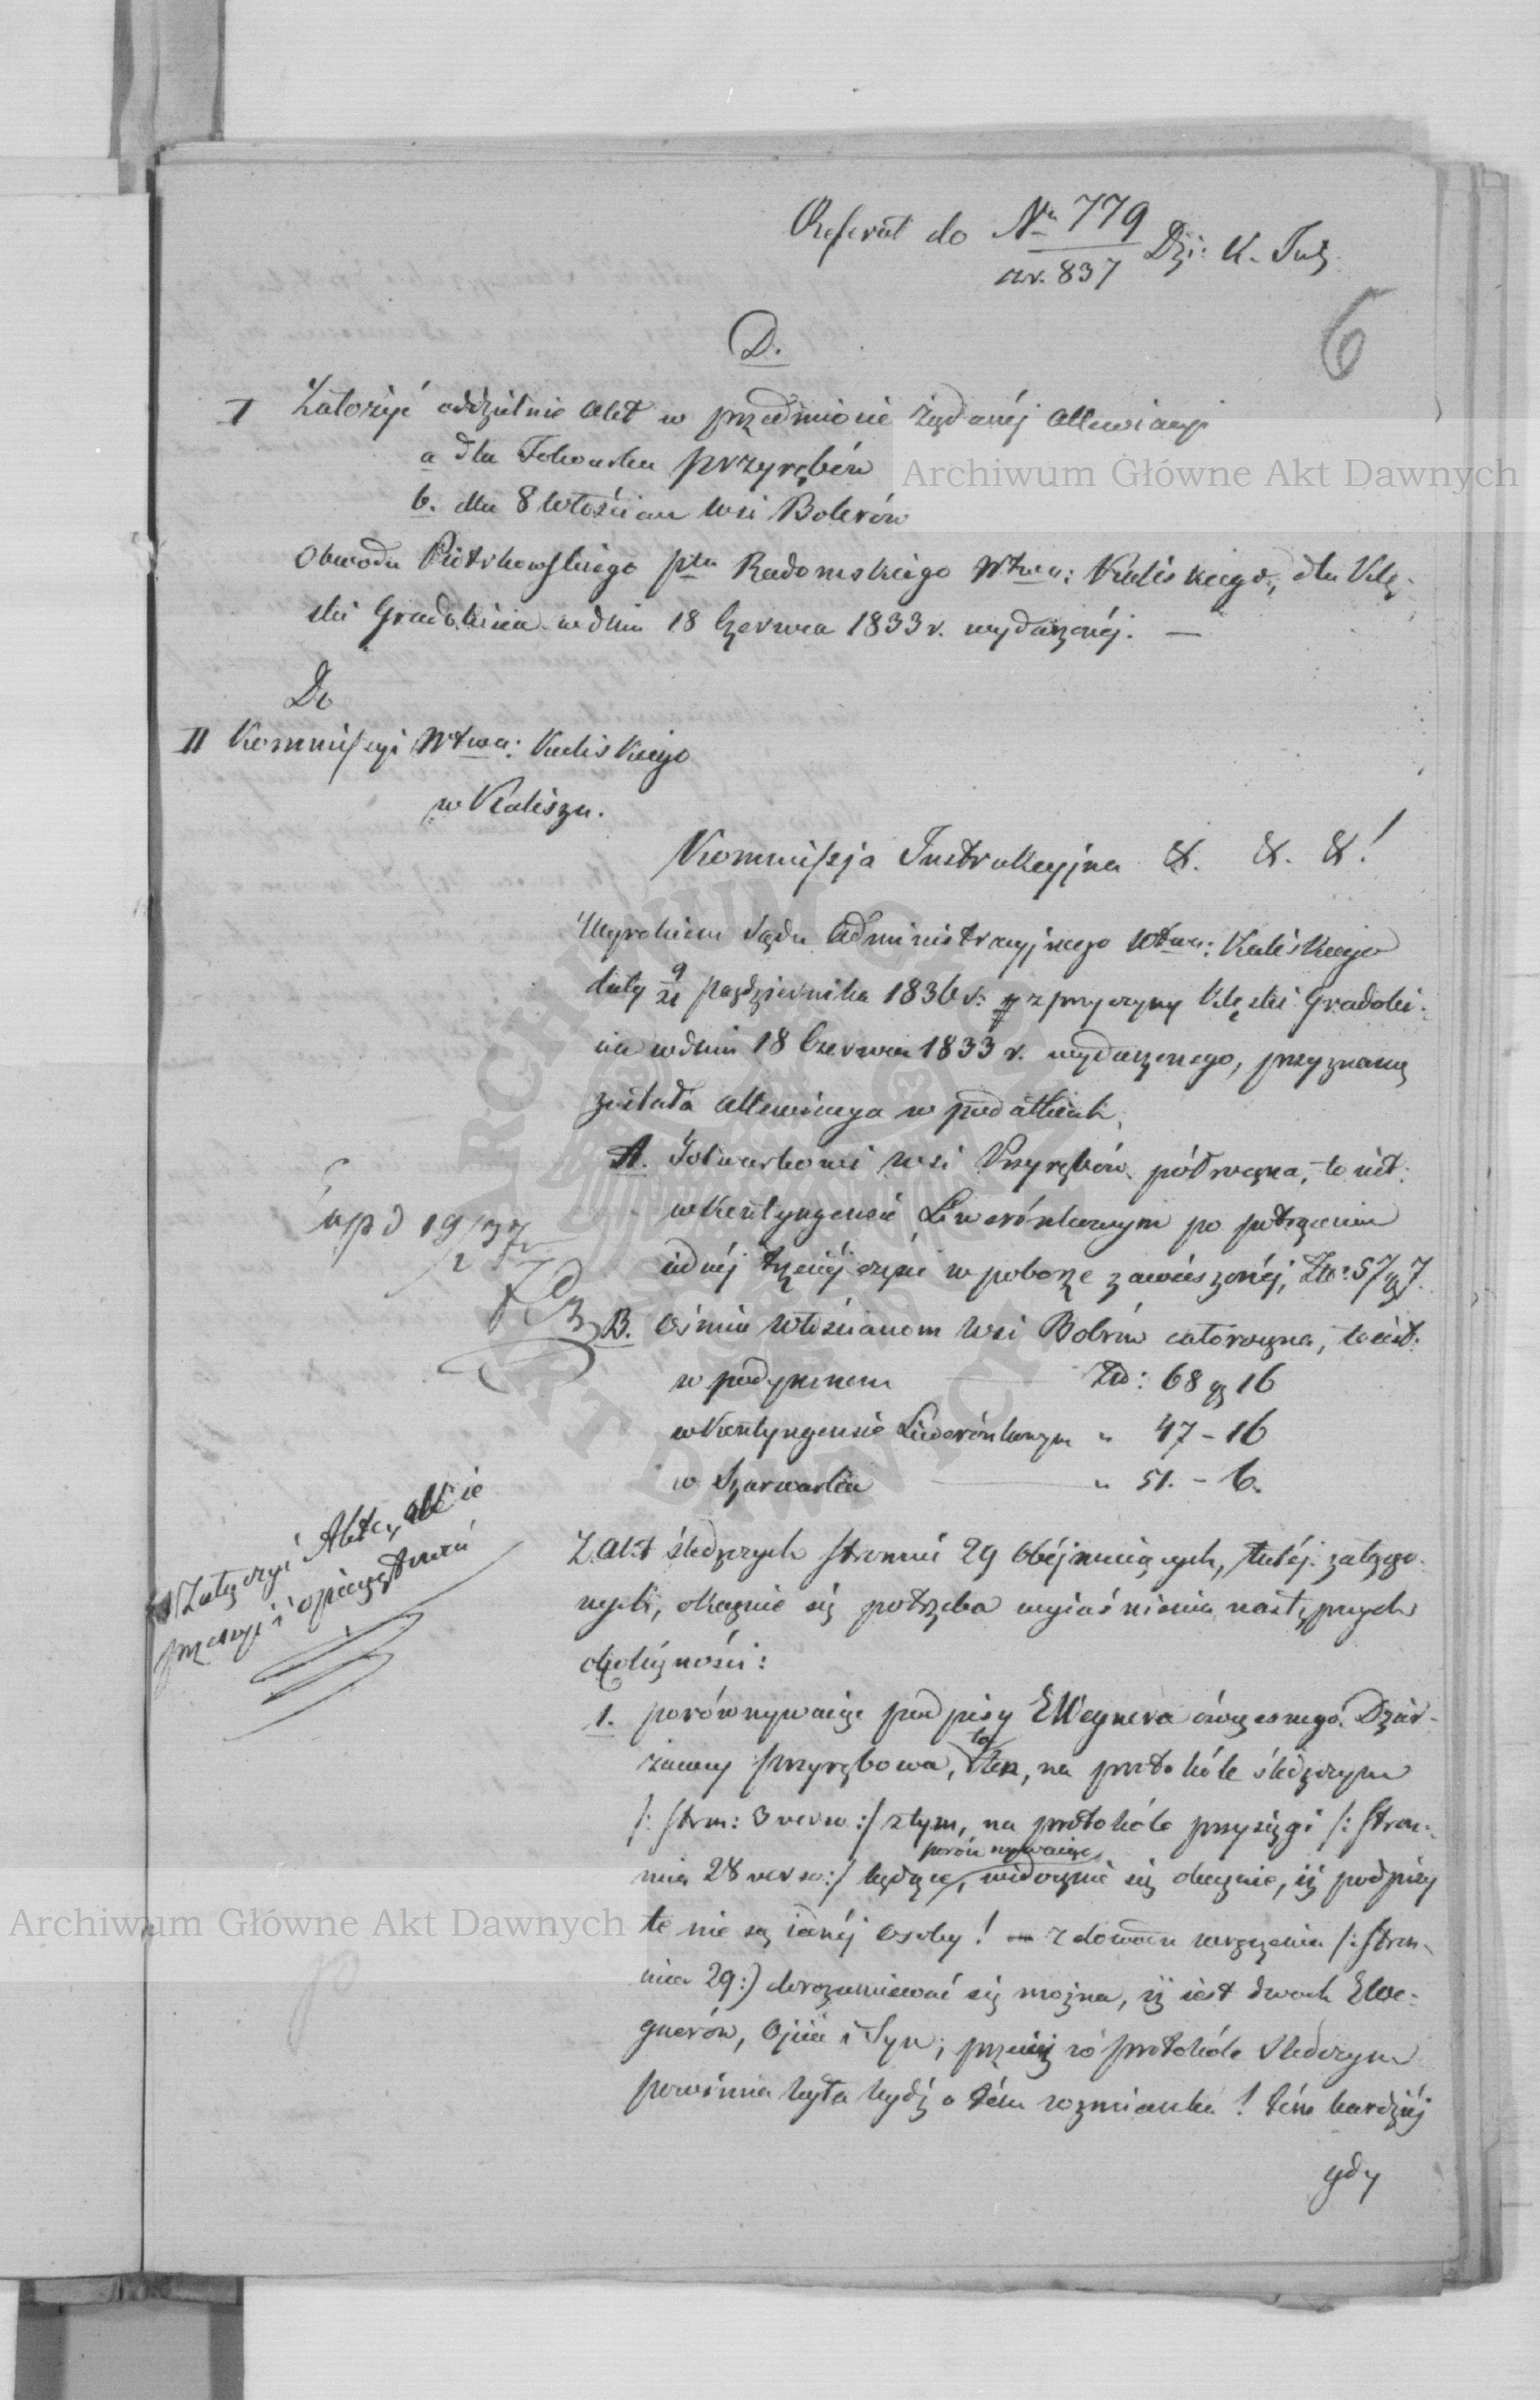 Referat do Nro 779 Dzi: K. Inst:
z r. 837
6
D.
I Założyć oddzielnie Akt w przedmiocie żądanéj Allewiacyi
a dla Folwarku Przyrębów
b. dla 8 Włościan Wsi Bobrów
Obwodu Piotrkowskiego ptu Radomskiego Wtwa: Kaliskiego, dla Klę-
ski Gradobicia w dniu 18 Czerwca 1833 r. wydarzonéj. —
Do
II Kommissyi Wtwa: Kaliskiego
w Kaliszu.
Kommissja Instrukcyjna &. &. &!
Wyrokiem Sądu Administracyjnego Wtwa: Kaliskiego
daty 9/21 Października 1836 r: z przyczyny Klęski Gradobi-
cia w dniu 18 Czerwca 1833 r. wydarzonego, przyznaną
została Allewiacya w podatkach,
A. Folwarkowi wsi Przyrębów półroczna, to iest:
w Kontyngensie Liwerónkowym po potrąceniu
iednéj trzeciéj części w poborze zawieszonéj, Złp: 57 gr 7.
B. Ośmiu Włościanom Wsi Bobrów całoroczna, to iest:
w podymnem Złp: 68 gr 16
w Kontyngensie Liwerónkowym " 47 - 16
w Szarwarku " 51. - 6.
Z Akt śledczych stronnic 29 obéjmuiących, tutéj załączo-
nych, okazuie się potrzeba wyiaśnienia następnych
okoliczności:
1. porównywaiąc podpisy E Wegnera ówczesnego Dzier-
żawcy Przyrębowa, to ten, na protokóle śledczym
/: stron: 3 verso :/ z tym, na protokóle przysięgi /: stron-
nica 28 verso :/ będące, porównywaiąc widocznie się okazuie, iż podpisy
te nie są iednéj osoby! z dowodu wręczenia /: stron-
nica 29 :/ dorozumiewać się można, iż iest dwóch E We-
gnerów, Ojciec i Syn; przeciéż w protokóle śledczym
powinna była bydź o tém wzmianka! tém bardziéj
gdy
Exp d 19/2 37
Załączyć Akta, Akcie
przeszyć i opieczętować
Archiwum Główne Akt Dawnych
Archiwum Główne Akt Dawnych
ARCHIWUM GŁÓWNE AKT DAWNYCH